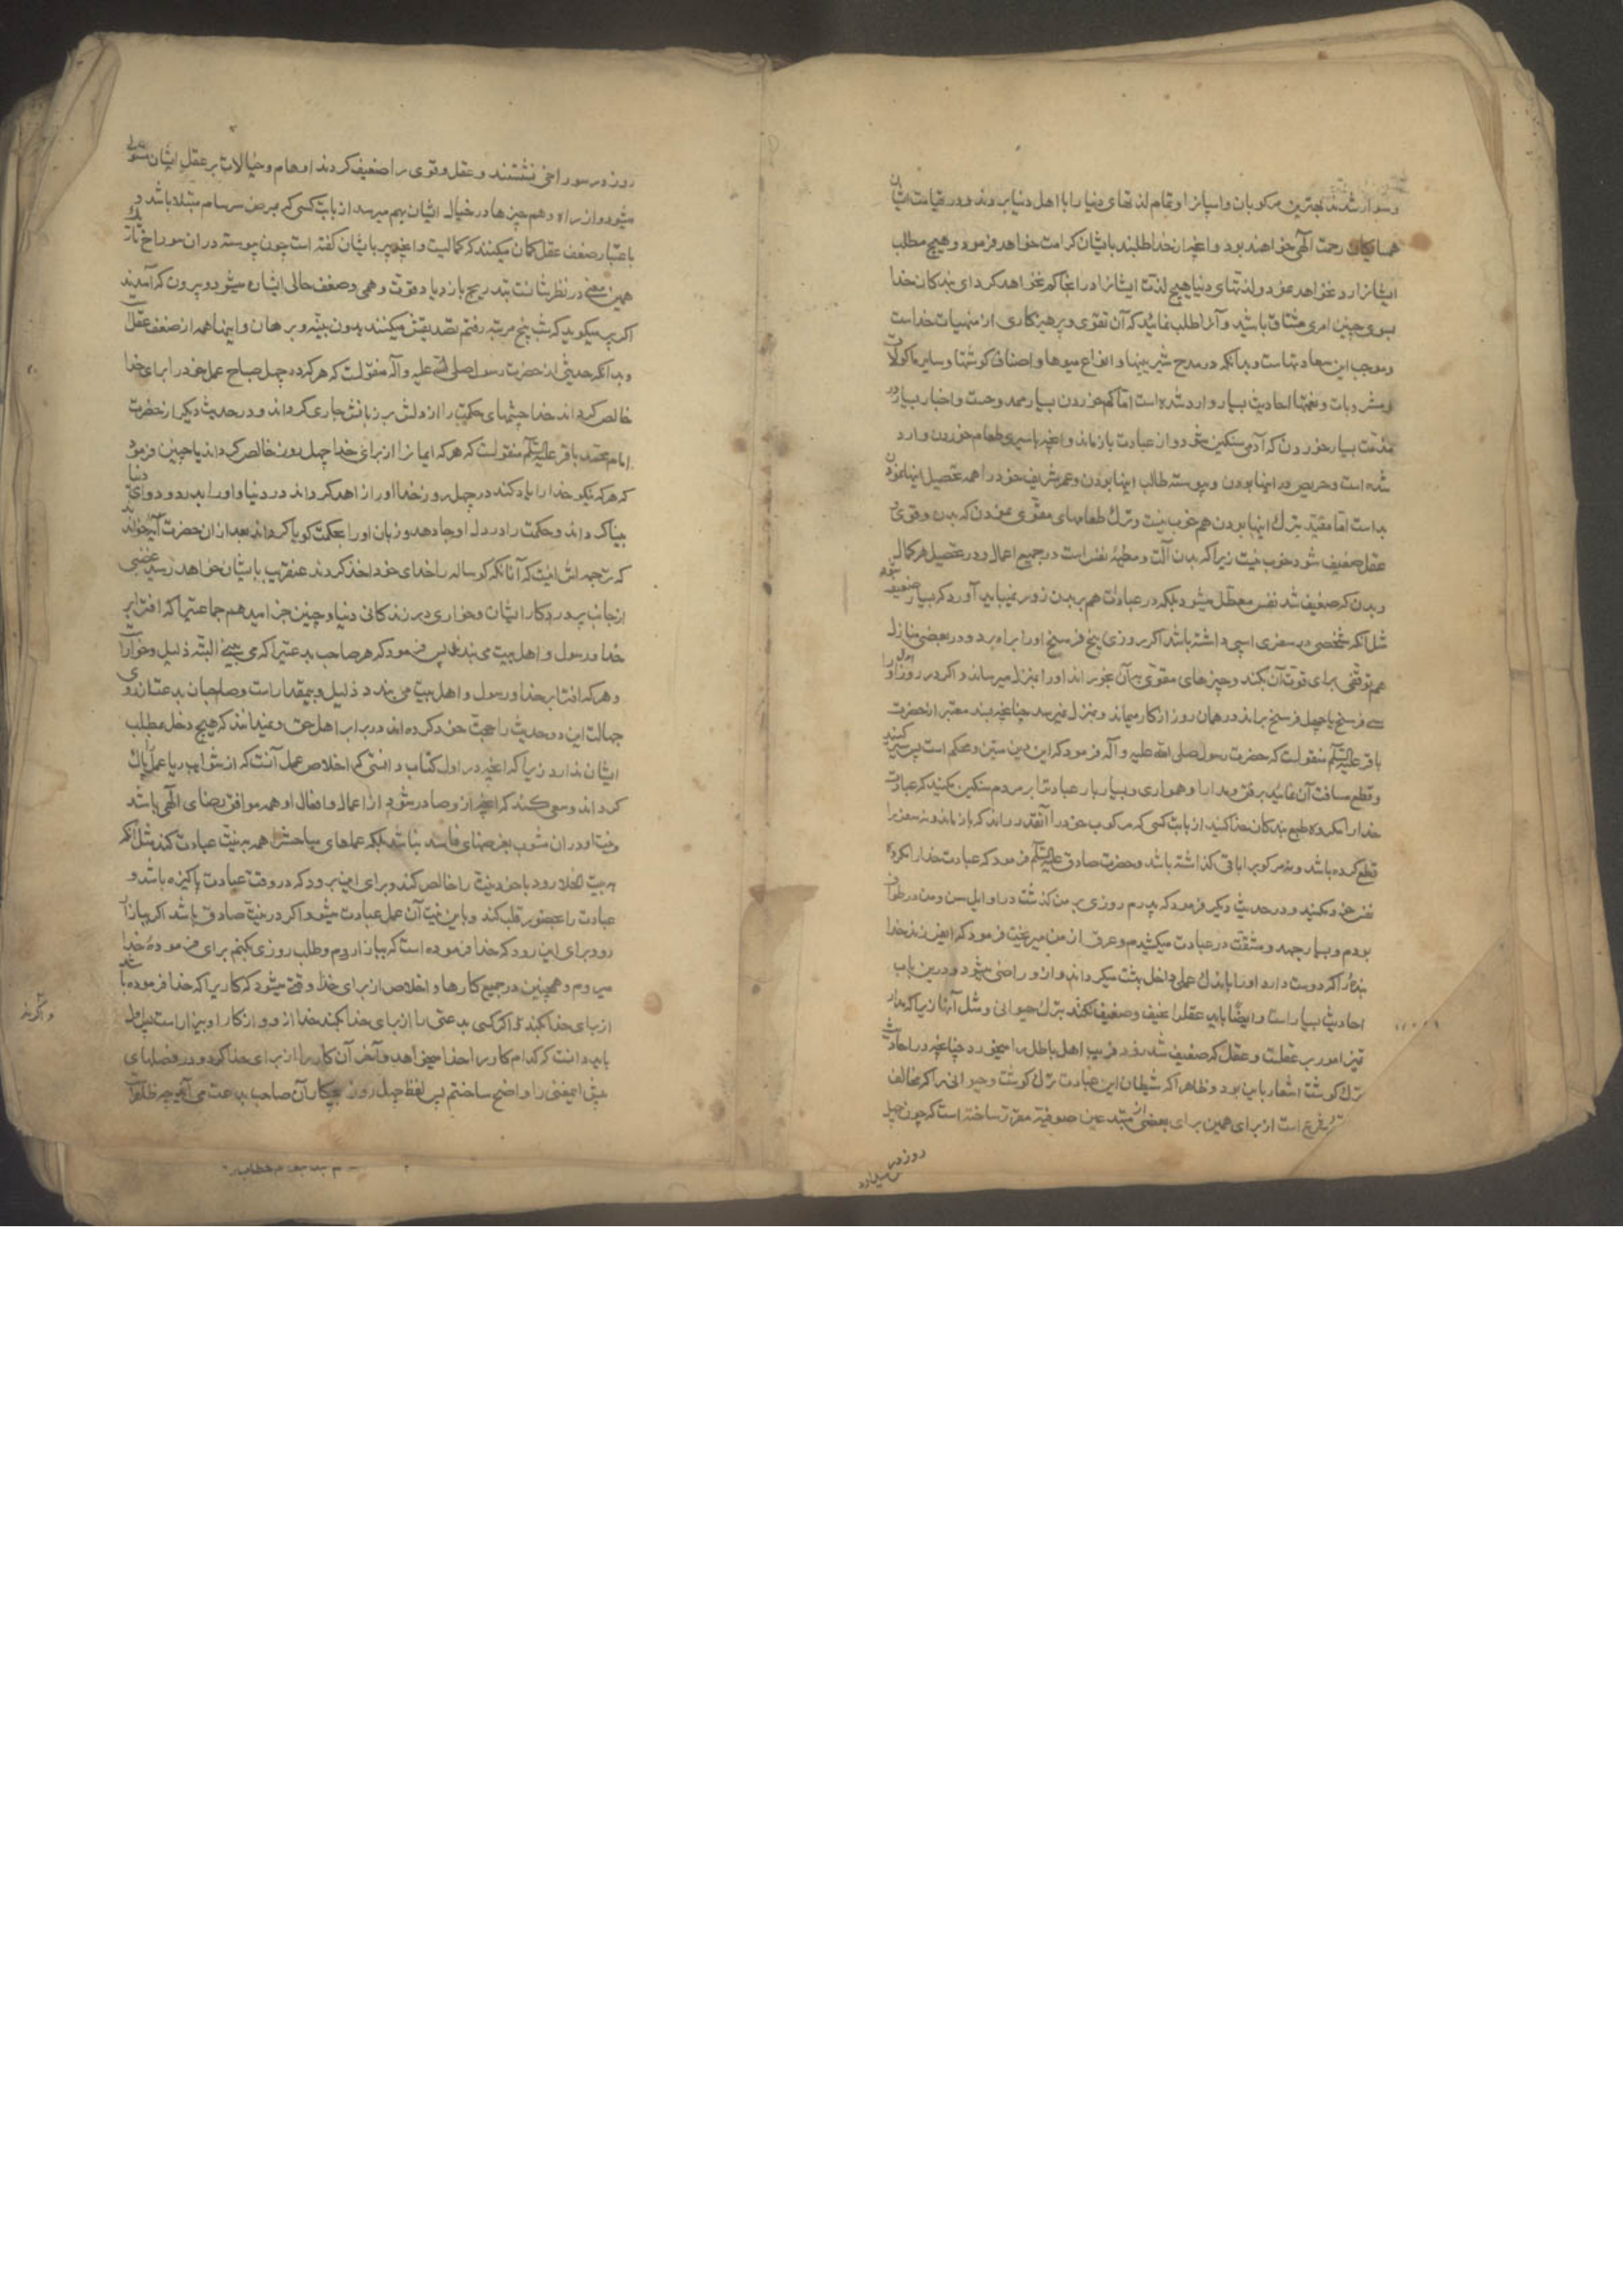 و سوار شدند بهترین مرکوبان و اسپانرا و تمام لذتهای دنیا را با اهل دنیا بردند و در قیامت ایشان
همسایکان رحمت الهی خواهند بود و آنچه از خدا طلبند بایشان کرامت خواهد فرمود و هیچ مطلب
ایشانرا رد نخواهد نمود و لذتهای دنیا هیچ لذت ایشانرا در انجا کم نخواهد کرد ای بندکان خدا
بسوی چنین امری مشتاق باشید و آنرا طلب نمائید که آن تقوی و پرهیزکاری از منهیات خداست
و موجب این سعادتهاست و بدانکه در مدح شیرینیها و انواع میوها و اصناف کوشتها و سایر ماکولات
و مشروبات و نعمتها احادیث بسیار وارد شده است اما کم خوردن بسیار ممدوحست و اخبار بسیار در
مذمت بسیار خوردن که آدمی سنکین شود و از عبادت بازماند و آنچه با سیری طعام خوردن وارد
شده است و حریص در اینها بودن و پیوسته طالب اینها بودن و عمر شریف خود را همه تحصیل اینها نمودن
بد است اما مقید بترک اینها بودن هم خوب نیست و ترک طعامهای مقوی نمودن که بدن و قوی و
عقل ضعیف شود خوب نیست زیرا که بدن آلت و مطیه نفس است در جمیع اعمال و در تحصیل هر کمال
و بدن که ضعیف شد نفس معطل میشود بلکه در عبادت هم بر بدن زور نمیباید آورد که بسیار ضعیف شود
مثل آنکه شخصی در سفری اسپی داشته باشد اکر روزی پنج فرسخ او را براه برد و در بعضی منازل
هم توقفی برای قوت آن بکند و چیزهای مقوی بآن بخوراند او را بمنزل میرساند و اکر در روز اول او را
سی فرسخ یا چهل فرسخ براند در همان روز از کار میماند و بمنزل نمیرسد چنانچه بسند معتبر از حضرت
باقر علیه السلم منقولست که حضرت رسول صلی الله علیه و آله فرمود که این دین متین و محکم است پس سیر کنید
و قطع مسافت آن نمائید برفق و مدارا و همواری و بسیار بار عبادت را بر مردم سنکین مکنید که عبادت
خدا را مکروه طبع بندکان خدا کنید از بابت کسی که مرکوب خود را آنقدر راند که بازماند و نه سفر را
قطع کرده باشد و نه مرکوبرا باقی کذاشته باشد و حضرت صادق علیه السلم فرمود که عبادت خدا را مکروه
نفس خود مکنید و در حدیث دیکر فرمود که پدرم روزی بر من کذشت در اوایل سن و من در طواف
بودم و بسیار جهد و مشقت در عبادت میکشیدم و عرق از من میریخت فرمود که ای فرزند خدا
بنده را که دوست دارد او را باندک عملی داخل بهشت میکرداند و از او راضی میشود و درین باب
احادیث بسیار است و ایضا باید عقل را نحیف و ضعیف نکنند بترک حیوانی و مثل آن زیرا که مدار
تمیز امور بر عقلست و عقل که ضعیف شد زود فریب اهل باطل را میخورد چنانچه در احادیث
ترک کوشت اشعار باین بود و ظاهرا که شیطان این عبادت ترک کوشت و حیوانی را که مخالف
شرع است از برای همین برای بعضی از مبتدعین صوفیه مقرر ساخته است که چون چهل
روز در
روز در سوراخی نشستند و عقل و قوی را ضعیف کردند اوهام و خیالات بر عقل ایشان مستولی
میشود و از راه وهم چیزها در خیال ایشان بهم میرسد از بابت کسی که بمرض سرسام مبتلا باشد و
باعتبار ضعف عقل کمان میکنند که کمالیست و آنچه پیر بایشان کفته است چون پیوسته در ان سوراخ تارک
همین معنی در نظرشانست بتدریج بازدیاد قوت وهمی و ضعف حالی ایشان میشود و بیرون که آمدند
اکر پیر میکوید که شب پنج مرتبه رفتم تصدیقش میکنند بدون بینه و برهان و اینها همه از ضعف عقلست
و بدانکه حدیثی از حضرت رسول صلی الله علیه و آله منقولست که هر که ده چهل صباح عمل خود را برای خدا
خالص کرداند خدا چشمهای حکمت را از دلش بر زبانش جاری کرداند و در حدیث دیکر از حضرت
امام محمد باقر علیه السلم منقولست که هر که ایمانرا از برای خدا چهل روز خالص کرداند یا چنین فرمود
که هر که نیکو خدا را یاد کند در چهل روز خدا او را زاهد کرداند در دنیا و او را بدرد و دوای دنیا
بینا کرداند و حکمت را در دل او جا دهد و زبان او را بحکمت کویا کرداند بعد از ان حضرت آیه خواند
که ترجمه اش اینست که آنانکه کوساله را خدای خود اخذ کردند عنقریب بایشان خواهد رسید غضبی
از جانب پروردکار ایشان و خواری در زندکانی دنیا و چنین جزا میدهم جماعتیرا که افترا بر
خدا و رسول و اهل بیت می بندند پس فرمود که هر صاحب بدعتیرا که می بینی البته ذلیل و خوار است
و هر که افترا بر خدا و رسول و اهل بیت می بندد ذلیل و بیمقدار است و صاحبان بدعت از روی
جهالت این دو حدیث را حجت خود کرده اند در برابر اهل حق و نمیدانند که هیچ دخل بمطلب
ایشان ندارد زیرا که آنچه در اول کتاب دانستی که اخلاص عمل آنست که از شوایب ریا عمل را پاک
کرداند و سعی کند که آنچه از و صادر شود از اعمال و افعال او همه موافق رضای الهی باشد
و نیت او در ان مشوب بغرضهای فاسد نباشد بلکه عملهای مباحش را همه بنیت عبادت کند مثل آنکه
ببیت الخلا رود با خود نیت را خالص کند و برای این برود که در وقت عبادت پاکیزه باشد و
عبادت را بحضور قلب کند و باین نیت آن عمل عبادت میشود اکر در نیت صادق باشد اکر ببازار
رود برای این رود که خدا فرموده است که ببازار روم و طلب روزی بکنم برای فرموده خدا
میروم و همچنین در جمیع کارها و اخلاص از برای خدا وقتی میشود که کاریرا که خدا فرموده باشد
از برای خدا بکند و اکر کسی بدعتی را از برای خدا بکند خدا از و و از کار او بیزار است پس اول
باید دانست که کدام کار را خدا میخواهد و آخر آن کار را از برای خدا کرد و در فصلهای
پیش اینمعنی را واضح ساختم پس لفظ چهل روز بچکار آن صاحب بدعت می آید